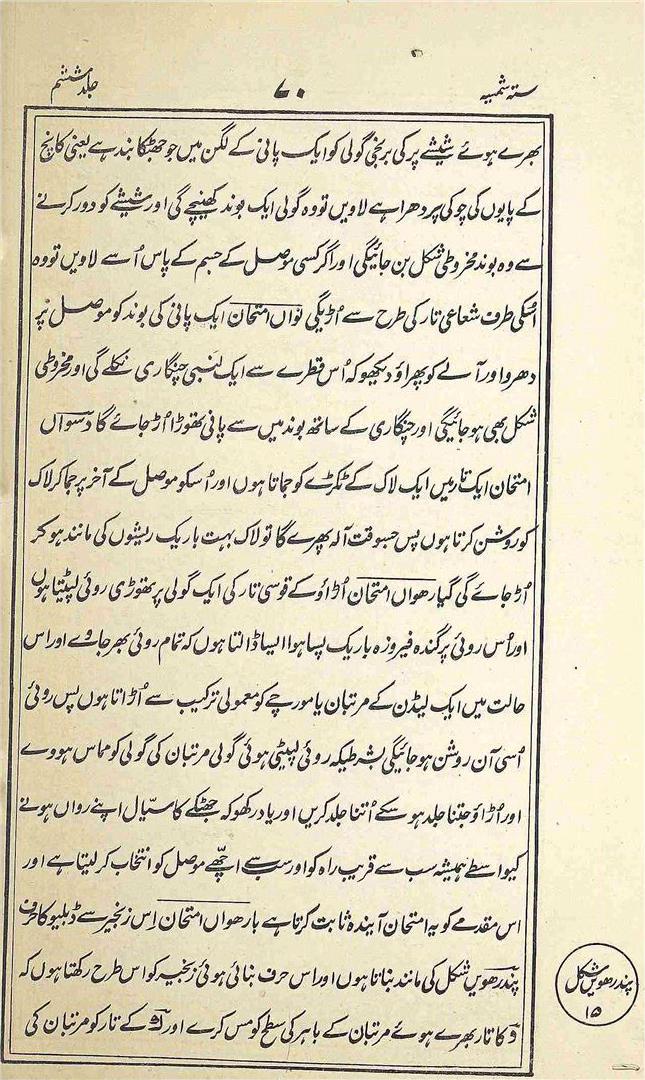 سته شمسیہ
۷۰
جلد ششم
بھرے ہوئے شیشے پر کی برنجی گولی کو ایک پانی کے لگن میں جو جھٹکا بند ہے یعنی کانچ
کے پایوں کی چوکی پر دھرا ہے لاویں تو وہ گولی ایک بوند کھینچے گی اور شیشے کو دور کرنے
سے وہ بوند مخروطی شکل بن جائیگی اور اگر کسی موصل کے جسم کے پاس اُسے لاویں تو وہ
اُسکی طرف شعاعی تار کی طرح سے اُڑیگی نواں امتحان ایک پانی کی بوند کو موصل پر
دھرو اور آلے کو پھراؤ دیکھو کہ اُس قطرے سے ایک لنبی چنگاری نکلے گی اور مخروطی
شکل بھی ہو جائیگی اور چنگاری کے ساتھ بوند میں سے پانی تھوڑا اُڑ جائے گا دسواں
امتحان ایک تار میں ایک لاک کے ٹکڑے کو جماتا ہوں اور اُسکو موصل کے آخر پر جما کر لاک
کو روشن کرتا ہوں پس جسوقت آلہ پھرے گا تو لاک بہت باریک ریشوں کی مانند ہو کر
اُڑ جائے گی گیارھواں امتحان اُڑاؤ کے قوسی تار کی ایک گولی پر تھوڑی روئی لپیٹتا ہوں
اور اُس روئی پر گندہ فیروزہ باریک پسا ہوا ایسا ڈالتا ہوں کہ تمام روئی بھر جاوے اور اس
حالت میں ایک لیڈن کے مرتبان یا مورچے کو معمولی ترکیب سے اُڑاتا ہوں پس روئی
اُسی آن روشن ہو جائیگی بشرطیکہ روئی لپیٹی ہوئی گولی مرتبان کی گولی کو مماس ہووے
اور اُڑاؤ جتنا جلد ہو سکے اُتنا جلد کریں اور یاد رکھو کہ جھٹکے کا سیّال اپنے رواں ہونے
کیواسطے ہمیشہ سب سے قریب راہ کو اور سب سے اچھّے موصل کو انتخاب کر لیتا ہے اور
اس مقدمے کو یہ امتحان آیندہ ثابت کرتا ہے بارھواں امتحان اِس زنجیر سے ڈبلیو کا حرف
پندرھویں شکل کی مانند بناتا ہوں اور اس حرف بنائی ہوئی زنجیر کو اس طرح رکھتا ہوں کہ
کا تار بھرے ہوئے مرتبان کے باہر کی سطح کو مس کرے اور کے تار کو مرتبان کی
پندرھویں شکل
۱۵